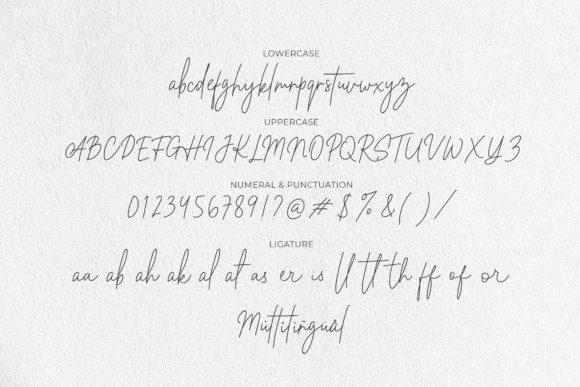 LOWERCASE
abcdefghyklmnpqrstuvwxyz
UPPERCASE
ABCDEFGHIJKLMNOPQRSTUVWXYZ
NUMERAL & PUNCTUATION
0123456789!?@#$%&()/
LIGATURE
aa ab ah ak al at as er is ll tt th ff of or
Müttitiñguâl